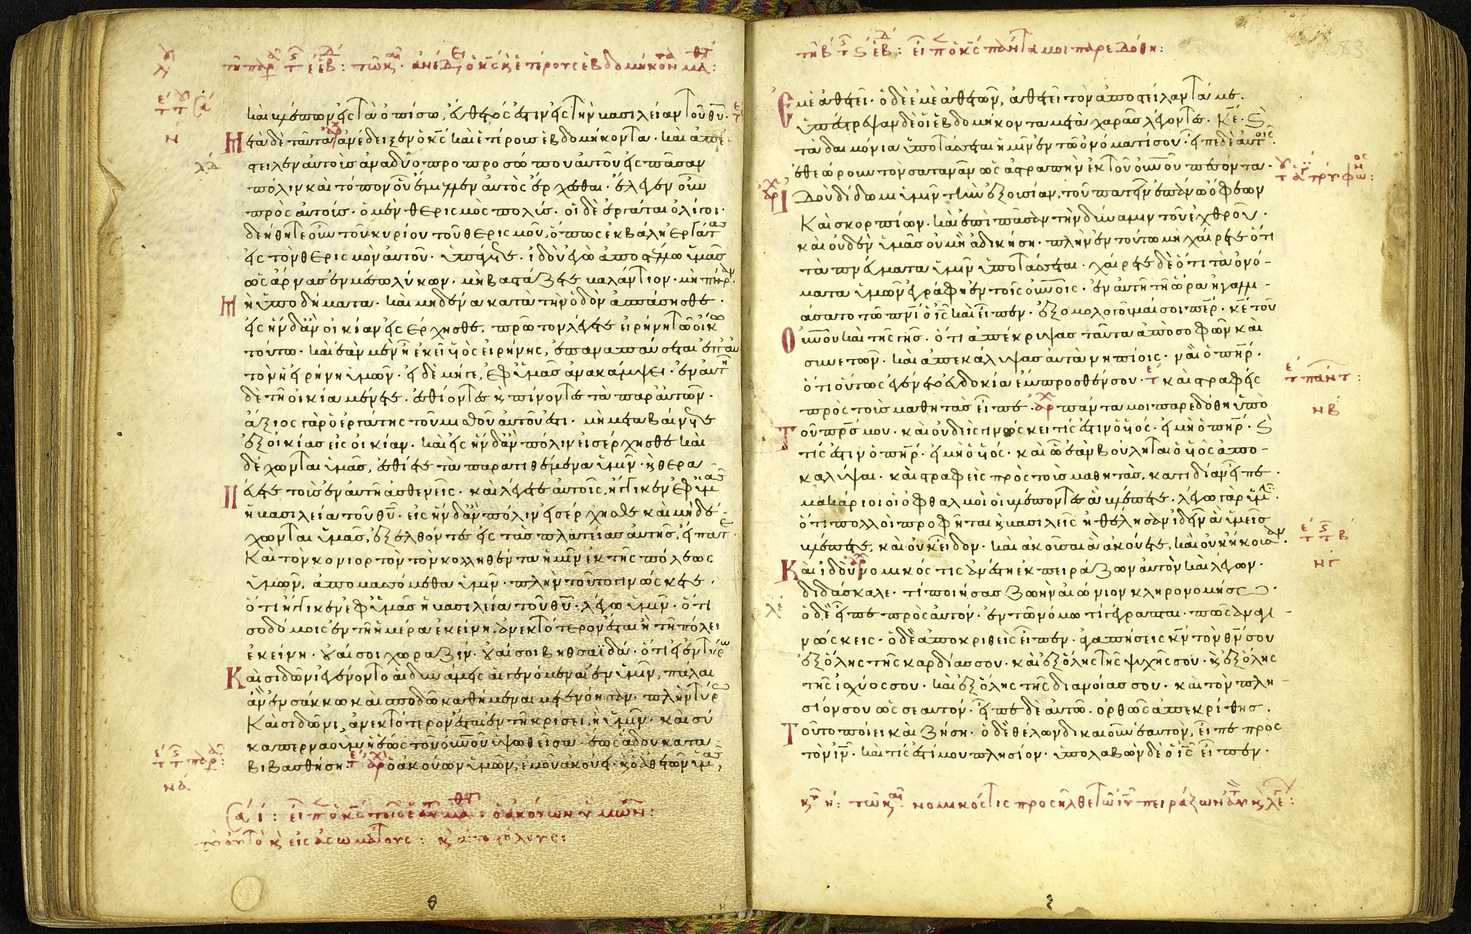 καὶ βλέπων εἰς τὰ ὀπίσω, εὔθετός ἐστιν εἰς τὴν βασιλείαν τοῦ θῦ·
Μετὰ δὲ ταῦτα ἀνέδειξεν ὁ κς καὶ ἑτέρους ἑβδομήκοντα· καὶ ἀπέ
στειλεν αὐτοὺς ἀνὰ δύο πρὸ προσώπου αὐτοῦ εἰς πᾶσαν
πόλιν καὶ τόπον οὗ ἔμελλεν αὐτὸς ἔρχεσθαι· ἔλεγεν οὖν
πρὸς αὐτούς· ὁ μὲν θερισμὸς πολύς· οἱ δὲ ἐργάται ὀλίγοι·
δεήθητε οὖν τοῦ κυρίου τοῦ θερισμοῦ· ὅπως ἐκβάλη ἐργάτας
εἰς τὸν θερισμὸν αὐτοῦ· ὑπάγετε· ἰδοὺ ἐγὼ ἀποστέλλω ὑμᾶς
ὡς ἄρνας ἐν μέσω λύκων· μὴ βαστάζετε βαλάντιον· μὴ πήραν·
μὴ ὑποδήματα· καὶ μηδένα κατὰ τὴν ὁδὸν ἀσπάσησθε·
εἰς ἣν δ' ἂν οἰκίαν εἰσέρχησθε, πρῶτον λέγετε εἰρήνη τῶ οἴκω
τούτω· καὶ ἐὰν μὲν ἦ ἐκεῖ υἱὸς εἰρήνης, ἐπαναπαύσεται ἐπ' αὐ
τὸν ἡ εἰρήνη ὑμῶν· εἰ δὲ μήγε, ἐφ' ὑμᾶς ἀνακάμψει· ἐν αὐτῆ
δὲ τῆ οἰκία μένετε· ἐσθίοντες κ πίνοντες τὰ παρ' αὐτῶν·
ἄξιος γὰρ ὁ ἐργάτης τοῦ μισθοῦ αὐτοῦ ἐστι· μὴ μεταβαίνετε
ἐξ οἰκίας εἰς οἰκίαν· καὶ εἰς ἣν δ' ἂν πόλιν εἰσέρχησθε καὶ
δέχωνται ὑμᾶς, ἐσθίετε τὰ παρατιθέμενα ὑμῖν· κ θερα
πεύετε τοὺς ἐν αὐτῆ ἀσθενεῖς· καὶ λέγετε αὐτοῖς, ἤγγικεν ἐφ' ὑμᾶς
ἡ βασιλεία τοῦ θῦ· εἰς ἣν δ' ἂν πόλιν εἰσέρχησθε καὶ μὴ δέ
χωνται ὑμᾶς, ἐξελθόντες εἰς τὰς πλατείας αὐτῆς, εἴπατε·
Καὶ τὸν κονιορτὸν τὸν κολληθέντα ἡμῖν ἐκ τῆς πόλεως
ὑμῶν, ἀπομασσόμεθα ὑμῖν· πλὴν τοῦτο γινώσκετε·
ὅτι ἤγγικεν ἐφ' ὑμᾶς ἡ βασιλεία τοῦ θῦ· λέγω ὑμῖν· ὅτι
σοδόμοις ἐν τῆ ἡμέρα ἐκείνη, ἀνεκτότερον ἔσται ἢ τῆ πόλει
ἐκείνη· οὐαί σοι χωραζίν· οὐαί σοι βηθσαϊδά· ὅτι εἰ ἐν τύρω
Καὶ σιδῶνι ἐγένοντο αἱ δυνάμεις αἱ γενόμεναι ἐν ὑμῖν, πάλαι
ἂν ἐν σάκκω καὶ σποδῶ καθήμεναι μετενόησαν· πλὴν τύρω
Καὶ σιδῶνι, ἀνεκτότερον ἔσται ἐν τῆ κρίσει, ἢ ὑμῖν· καὶ σὺ
καπερναοὺμ ἡ ἕως τοῦ οὐνοῦ ὑψωθεῖσα· ἕως ἅδου κατα
βιβασθήση· ὁ ἀκούων ὑμῶν, ἐμοῦ ἀκούει· κ ὁ ἀθετῶν ὑμᾶς,
τῆ β τ ς ἑβ: εἶπ ὁ κς πάντα μοι παρεδόθη:
Ἐμὲ ἀθετεῖ· ὁ δὲ ἐμὲ ἀθετῶν, ἀθετεῖ τὸν ἀποστείλαντά με·
ὑπέστρεψαν δὲ οἱ ἑβδομήκοντα μετὰ χαρᾶς λέγοντες· κε· καὶ
τὰ δαιμόνια ὑποτάσσεται ἡμῖν ἐν τῶ ὀνόματί σου· εἶπε δὲ αὐτοῖς·
ἐθεώρουν τὸν σατανᾶν ὡς ἀστραπὴν ἐκ τοῦ οὐνοῦ πεσόντα·
Ἰδοὺ δίδωμι ὑμῖν τὴν ἐξουσίαν, τοῦ πατεῖν ἐπάνω ὄφεων
Καὶ σκορπίων· καὶ ἐπὶ πᾶσαν τὴν δύναμιν τοῦ ἐχθροῦ·
καὶ οὐδὲν ὑμᾶς οὐ μὴ ἀδικήση· πλὴν ἐν τούτω μὴ χαίρετε ὅτι
τὰ πνεύματα ὑμῖν ὑποτάσσεται· χαίρετε δὲ ὅτι τὰ ὀνό
ματα ὑμῶν ἐγράφη ἐν τοῖς οὐνοῖς· ἐν αὐτῆ τῆ ὥρα ἠγαλλι
άσατο τῶ πνι ὁ ις καὶ εἶπεν· ἐξομολογοῦμαί σοι περ· κε τοῦ
Οὐνοῦ καὶ τῆς γῆς· ὅτι ἀπέκρυψας ταῦτα ἀπὸ σοφῶν καὶ
συνετῶν· καὶ ἀπεκάλυψας αὐτὰ νηπίοις· ναὶ ὁ πηρ·
ὅτι οὕτως ἐγένετο εὐδοκία ἔμπροσθέν σου· καὶ στραφεὶς
πρὸς τοὺς μαθητὰς εἶπε· πάντα μοι παρεδόθη ὑπὸ
Τοῦ πρς μου· καὶ οὐδεὶς γινώσκει τίς ἐστιν ὁ υἱὸς· εἰ μὴ ὁ πηρ· καὶ
τίς ἐστιν ὁ πηρ· εἰ μὴ ὁ υἱός· καὶ ὧ ἐὰν βούληται ὁ υἱὸς ἀπο
καλύψαι· καὶ στραφεὶς πρὸς τοὺς μαθητὰς, κατιδίαν εἶπε·
μακάριοι οἱ ὀφθαλμοὶ οἱ βλέποντες ἃ βλέπετε· λέγω γὰρ ὑμῖν·
ὅτι πολλοὶ προφῆται κ βασιλεῖς ἠθέλησαν ἰδεῖν ἃ ὑμεῖς
βλέπετε, καὶ οὐκ εἶδον· καὶ ἀκοῦσαι ἃ ἀκούετε, καὶ οὐκ ἤκουσαν·
Καὶ ἰδοὺ νομικός τις ἀνέστη ἐκπειράζων αὐτὸν καὶ λέγων·
διδάσκαλε· τί ποιήσας ζωὴν αἰώνιον κληρονομήσω·
ὁ δὲ εἶπε πρὸς αὐτόν· ἐν τῶ νόμω τί γέγραπται· πῶς ἀναγι
νώσκεις· ὁ δὲ ἀποκριθεὶς εἶπεν· ἀγαπήσεις κν τὸν θν σου
ἐξ ὅλης τῆς καρδίας σου· καὶ ἐξ ὅλης τῆς ψυχῆς σου· κ ἐξ ὅλης
τῆς ἰσχύος σου· καὶ ἐξ ὅλης τῆς διανοίας σου· καὶ τὸν πλη
σίον σου ὡς σεαυτόν· εἶπε δὲ αὐτῶ· ὀρθῶς ἀπεκρίθης·
Τοῦτο ποίει καὶ ζήση· ὁ δὲ θέλων δικαιοῦν ἑαυτὸν, εἶπε πρὸς
τὸν ιν· καὶ τίς ἐστί μου πλησίον· ὑπολαβὼν δὲ ὁ ις εἶπεν·